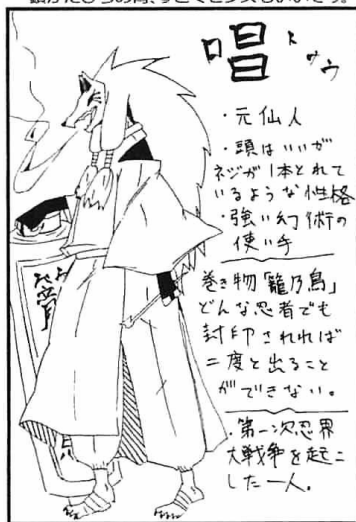 唱 トウウ
・元仙人
・頭はいいが
ネジが1本とれて
いるような性格
・強い幻術の
使い手
巻き物「籠乃鳥」
どんな忍者でも
封印されれば
二度と出ること
ができない。
・第一次忍界
大戦争を起こ
した一人。